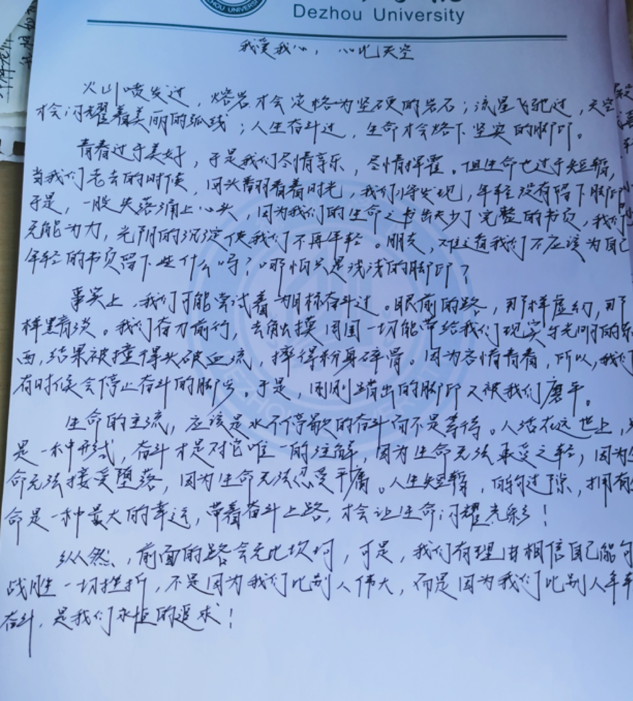 DEZHOU UNIVERSITY
Dezhou University
我爱我心，心比天空
火山喷发过，熔岩才会定格为坚硬的岩石；流星飞驰过，天空
才会闪耀着美丽的弧线；人生奋斗过，生命才会烙下坚实的脚印。
青春过于美好，于是我们尽情享乐，尽情挥霍。但生命也过于短暂，
当我们老去的时候，回头看看时光，我们将发现，年轻没有留下脚印
于是，一股失落涌上心头，因为我们的生命之书出缺少了完整的书页，我们
无能为力，光阴的沉淀使我们不再年轻。朋友，难道我们不应该为自己
年轻的书页留下些什么吗？哪怕只是浅浅的脚印？
事实上，我们可能尝试着为目标奋斗过。眼前的路，那样虚幻，那
样黑暗淡。我们奋力前行，去触摸周围一切能带给我们现实与光明的东
西，结果被撞得头破血流，摔得粉身碎骨。因为吝惜青春，所以，我们
有时候会停止奋斗的脚步。于是，刚刚踏出的脚印又被我们磨平。
生命的主流，应该是永不停歇的奋斗而不是等待。人活在这世上，
是一种形式，奋斗才是对它唯一的注解，因为生命无法承受之轻，因为生
命无法接受堕落，因为生命无法忍受平庸。人生短暂，白驹过隙，拥有生
命是一种最大的幸运，带着奋斗上路，才会让生命闪耀光彩！
纵然，前面的路会无比坎坷，可是，我们有理由相信自己能够
战胜一切挫折，不是因为我们比别人伟大，而是因为我们比别人年轻
奋斗，是我们永恒的追求！